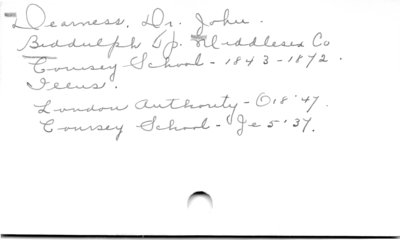 Dearness, Dr. John.
Biddulph Tp. Middlesex Co
Coursey School - 1843-1872.
Illus.
London Authority - O 18 '47.
Coursey School - Je 5 '37.